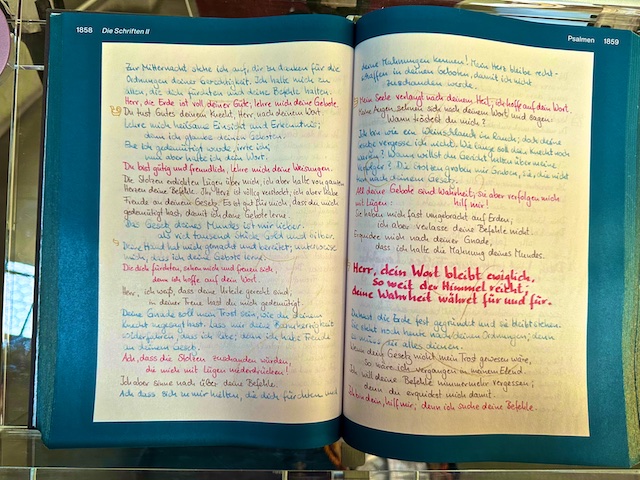 1858 Die Schriften II
Zur Mitternacht stehe ich auf, dir zu danken für die
Ordnungen deiner Gerechtigkeit. Ich halte mich zu
allen, die dich fürchten und deine Befehle halten.
Herr, die Erde ist voll deiner Güte; lehre mich deine Gebote.
Du tust Gutes deinem Knecht, Herr nach deinem Wort
Lehre mich heilsame Einsicht und Erkenntnis;
denn ich glaube deinen Geboten.
Ehe ich gedemütigt wurde, irrte ich;
nun aber halte ich dein Wort.
Du bist gütig und freundlich, lehre mich deine Weisungen.
Die Stolzen erdichten Lügen über mich, ich aber halte von ganzem
Herzen deine Befehle. Ihr Herz ist völlig verstockt; ich aber habe
Freude an deinem Gesetz. Es ist gut für mich, dass du mich
gedemütigt hast, damit ich deine Gebote lerne.
Das Gesetz deines Mundes ist mir lieber
als viel tausend Stück Gold und Silber.
Deine Hand hat mich gemacht und bereitet; unterweise
mich, dass ich deine Gebote lerne.
Die dich fürchten, sehen mich und freuen sich;
denn ich hoffe auf dein Wort.
Herr, ich weiß, dass deine Urteile gerecht sind;
in deiner Treue hast du mich gedemütigt.
Deine Gnade soll mein Trost sein, wie du deinem
Knecht zugesagt hast. Lass mir deine Barmherzigkeit
widerfahren, dass ich lebe; denn ich habe Freude
an deinem Gesetz.
Ach, dass die Stolzen zuschanden würden,
die mich mit Lügen niederdrücken!
Ich aber sinne nach über deine Befehle.
Ach dass sich zu mir hielten, die dich fürchten und
Psalmen 1859
deine Mahnungen kennen! Mein Herz bleibe recht-
schaffen in deinen Geboten, damit ich nicht
zuschanden werde.
Meine Seele verlangt nach deinem Heil; ich hoffe auf dein Wort.
Meine Augen sehnen sich nach deinem Wort und sagen:
Wann tröstest du mich?
Ich bin wie ein Weinschlauch im Rauch; doch deine
Gebote vergesse ich nicht. Wie lange soll dein Knecht noch
warten? Wann willst du Gericht halten über meine
Verfolger? Die Stolzen graben mir Gruben, sie, die nicht
tun nach deinem Gesetz.
All deine Gebote sind Wahrheit; sie aber verfolgen mich
mit Lügen: hilf mir!
Sie haben mich fast umgebracht auf Erden;
ich aber verlasse deine Befehle nicht.
Erquicke mich nach deiner Gnade,
dass ich halte die Mahnung deines Mundes.
Herr, dein Wort bleibt ewiglich,
so weit der Himmel reicht;
deine Wahrheit währet für und für.
Du hast die Erde fest gegründet und sie bleibt stehen.
Sie steht noch heute nach deinen Ordnungen; denn
es muss dir alles dienen.
Wenn dein Gesetz nicht mein Trost gewesen wäre,
so wäre ich vergangen in meinem Elend.
Ich will deine Befehle nimmermehr vergessen;
denn du erquickst mich damit.
Ich bin dein, hilf mir; denn ich suche deine Befehle.